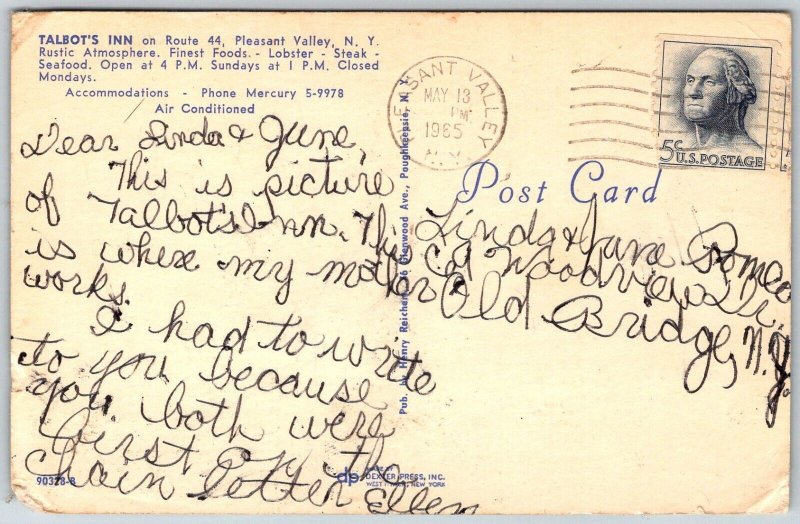 TALBOT'S INN on Route 44, Pleasant Valley, N. Y.
Rustic Atmosphere. Finest Foods. - Lobster - Steak -
Seafood. Open at 4 P.M. Sundays at 1 P.M. Closed
Mondays.
Accommodations - Phone Mercury 5-9978
Air Conditioned
Dear Linda & June,
This is picture
of Talbot's Inn. This
is where my mother
works.
I had to write
to you because
you both were
first on the
chain letter
Ellen
90328-B
Pub. by Henry Reichert, Glenwood Ave., Poughkeepsie, N. Y.
DEXTER PRESS, INC.
WEST NYACK, NEW YORK
PLEASANT VALLEY
MAY 13
PM
1965
N.Y.
5¢ U.S. POSTAGE
Post Card
Linda & June Romeo
Woodview Dr.
Old Bridge, N.J.